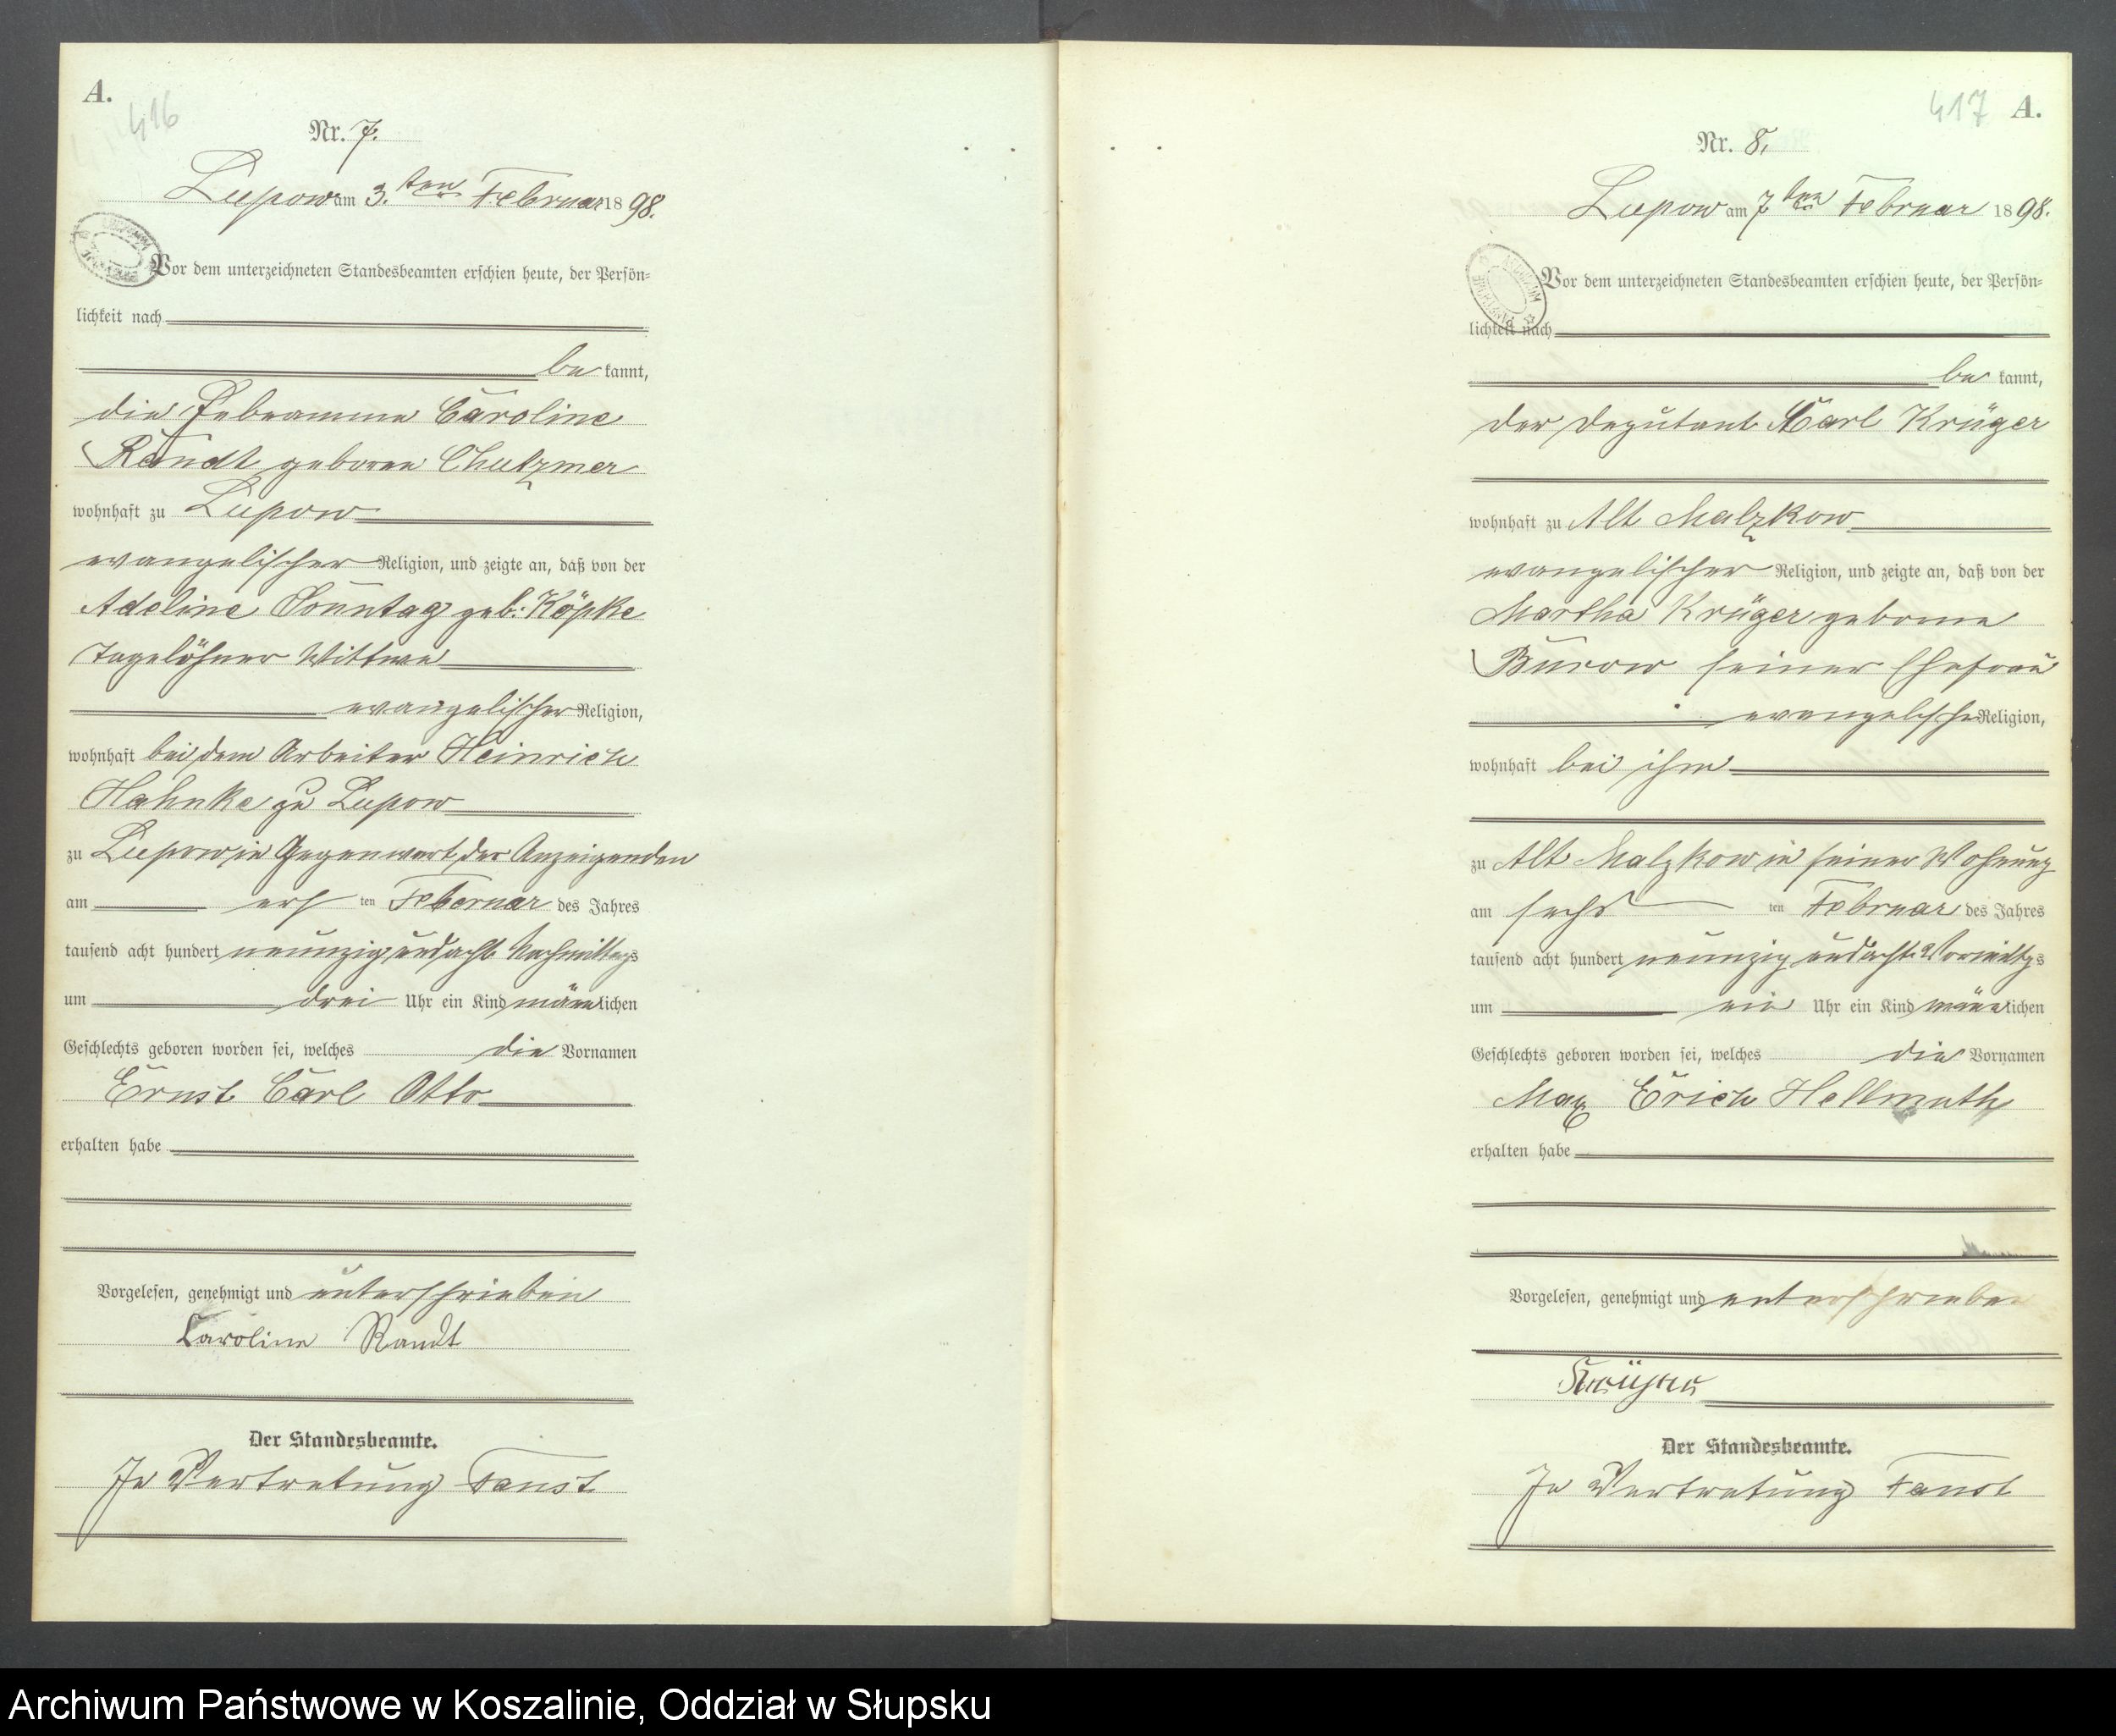 A.
416
Nr. 7.
Lupow am 3. ten Februar 1898.
Vor dem unterzeichneten Standesbeamten erschien heute, der Persön-
lichkeit nach
be kannt,
die Hebeamme Caroline
Randt geboren
wohnhaft zu Lupow
evangelischer Religion, und zeigte an, daß von der
Adeline Sonntag geb: Köpke
Tagelöhner Wittwe
evangelischer Religion,
wohnhaft bei dem Arbeiter Heinrich
Hahnke zu Lupow
zu Lupow in Gegenwart der Anzeigenden
am ers ten Februar des Jahres
tausend acht hundert neunzig und acht Nachmittags
um drei Uhr ein Kind männlichen
Geschlechts geboren worden sei, welches die Vornamen
Ernst Carl Otto
erhalten habe
Vorgelesen, genehmigt und unterschrieben
Caroline Randt
Der Standesbeamte.
In Vertretung Faust
417 A.
Nr. 8.
Lupow am 7 ten Februar 1898.
Vor dem unterzeichneten Standesbeamten erschien heute, der Persön-
lichkeit nach
be kannt,
der Deputant Carl Krüger
wohnhaft zu Alt Malzkow
evangelischer Religion, und zeigte an, daß von der
Martha Krüger geborne
Burow seiner Ehefrau
evangelischer Religion,
wohnhaft bei ihm
zu Alt Malzkow in seiner Wohnung
am sechs ten Februar des Jahres
tausend acht hundert neunzig und acht Vormittags
um ein Uhr ein Kind männlichen
Geschlechts geboren worden sei, welches die Vornamen
Max Erich Hellmuth
erhalten habe
Vorgelesen, genehmigt und unterschrieben
Krüger
Der Standesbeamte.
In Vertretung Faust
Archiwum Państwowe w Koszalinie, Oddział w Słupsku